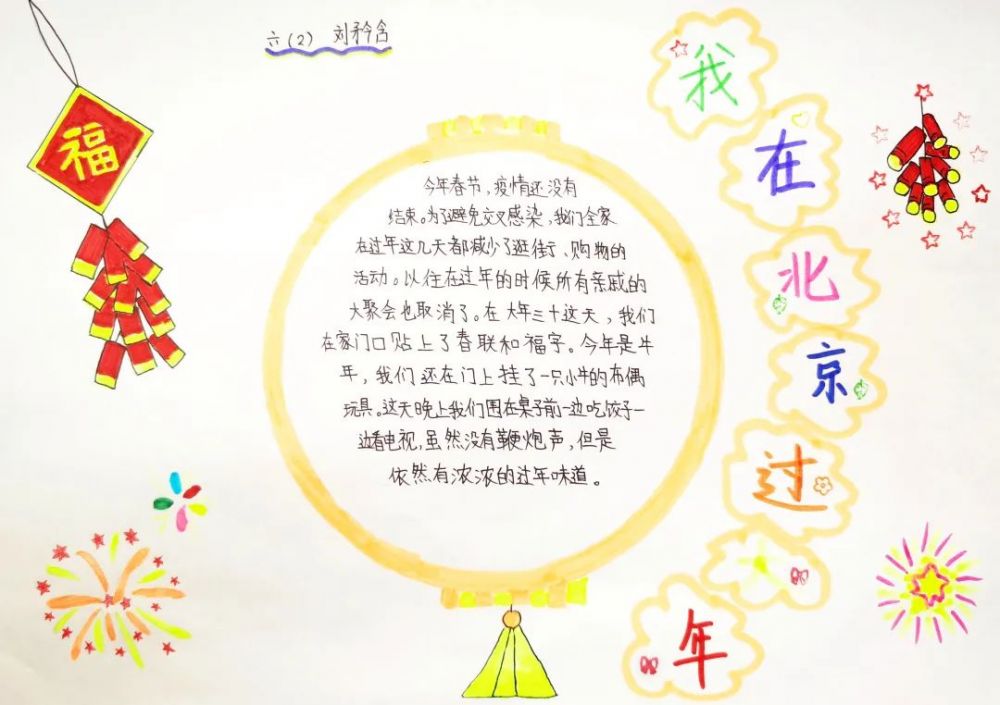 六(2) 刘矜含
福
我在北京过大年
今年春节，疫情还没有
结束。为了避免交叉感染，我们全家
在过年这几天都减少了逛街、购物的
活动。以往在过年的时候所有亲戚的
大聚会也取消了。在大年三十这天，我们
在家门口贴上了春联和福字。今年是牛
年，我们还在门上挂了一只小牛的布偶
玩具。这天晚上我们围在桌子前一边吃饺子一
边看电视，虽然没有鞭炮声，但是
依然有浓浓的过年味道。